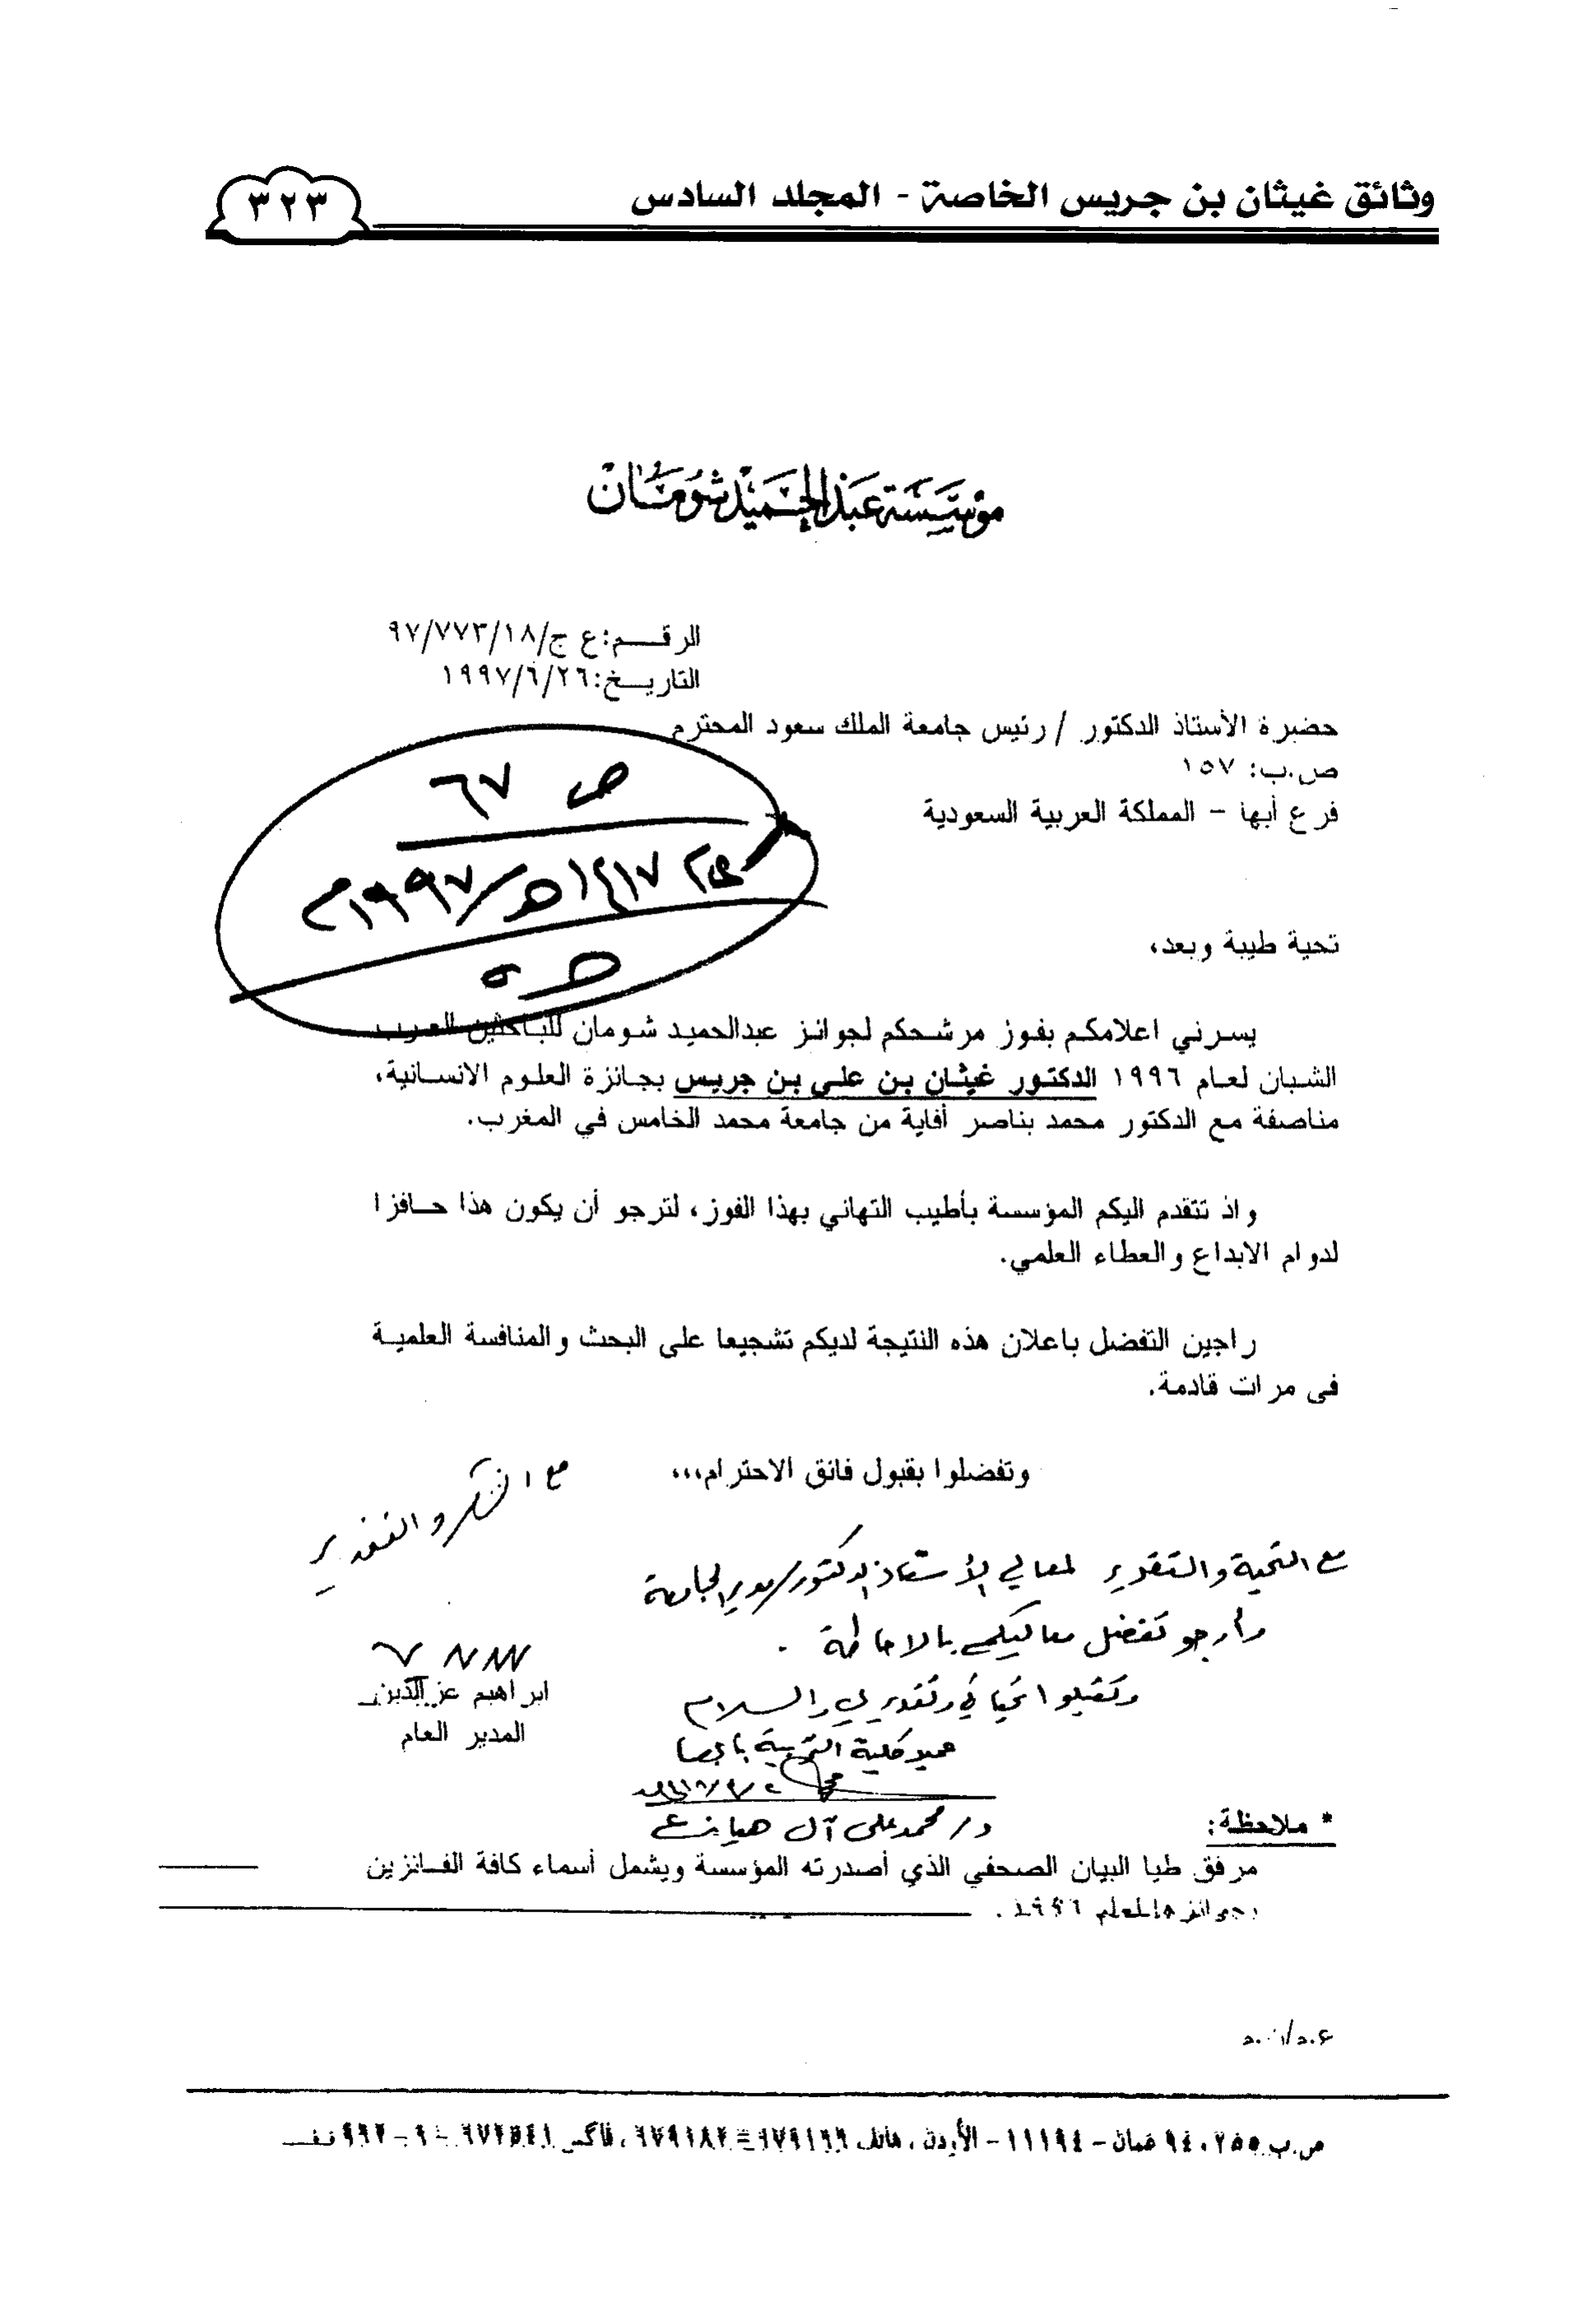 وثائق غيثان بن جريس الخاصة - المجلد السادس
٣٢٣
مؤسسة عبد الحميد شومان
الرقم: ع ج/٩٧/٧٧٣/١٨
التاريخ: ١٩٩٧/٦/٢٦
حضرة الأستاذ الدكتور / رئيس جامعة الملك سعود المحترم
ص.ب: ١٥٧
فرع أبها - المملكة العربية السعودية
ص ٦٧
١٤١٧هـ/١٩٩٧م
تحية طيبة وبعد،
يسرني اعلامكم بفوز مرشحكم لجوائز عبدالحميد شومان للباحثين العرب
الشبان لعام ١٩٩٦ الدكتور غيثان بن علي بن جريس بجائزة العلوم الانسانية،
مناصفة مع الدكتور محمد بناصر أفاية من جامعة محمد الخامس في المغرب.
واذ تتقدم اليكم المؤسسة بأطيب التهاني بهذا الفوز، لترجو أن يكون هذا حافزا
لدوام الابداع والعطاء العلمي.
راجين التفضل باعلان هذه النتيجة لديكم تشجيعا على البحث والمنافسة العلمية
في مرات قادمة.
وتفضلوا بقبول فائق الاحترام،،،
مع الشكر والتقدير
مع التحية والتقدير لمعالي الأستاذ الدكتور/ مدير الجامعة
وأرجو تفضل معاليكم بالاحاطة .
وتقبلوا تحياتي وتقديري والسلام
ابراهيم عز الدين
المدير العام
عميد كلية التربية بأبها
د/ محمد علي آل هيازع
* ملاحظة:
مرفق طيا البيان الصحفي الذي أصدرته المؤسسة ويشمل أسماء كافة الفائزين
بجوائزها لعام ١٩٩٦.
ص.ب ٩٤٠٢٥٥ عمان - ١١١٩٤ - الأردن، هاتف ٦٧٩١٦٦ = ٦٧٩١٨٢، فاكس